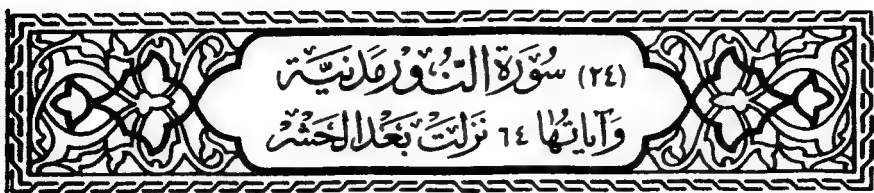 (٢٤) سُورَةُ النُّورِ مَدَنِيَّة
وَآيَاتُهَا ٦٤ نَزَلَتْ بَعْدَ الْحَشْرِ